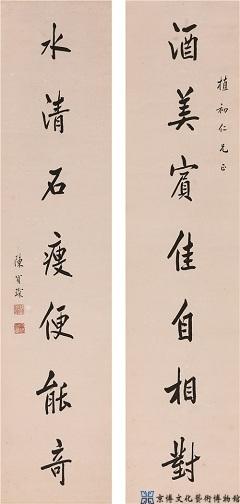 植初仁兄正
酒美賓佳自相對
水清石瘦便能奇
陳寶琛
京博文化藝術博物館